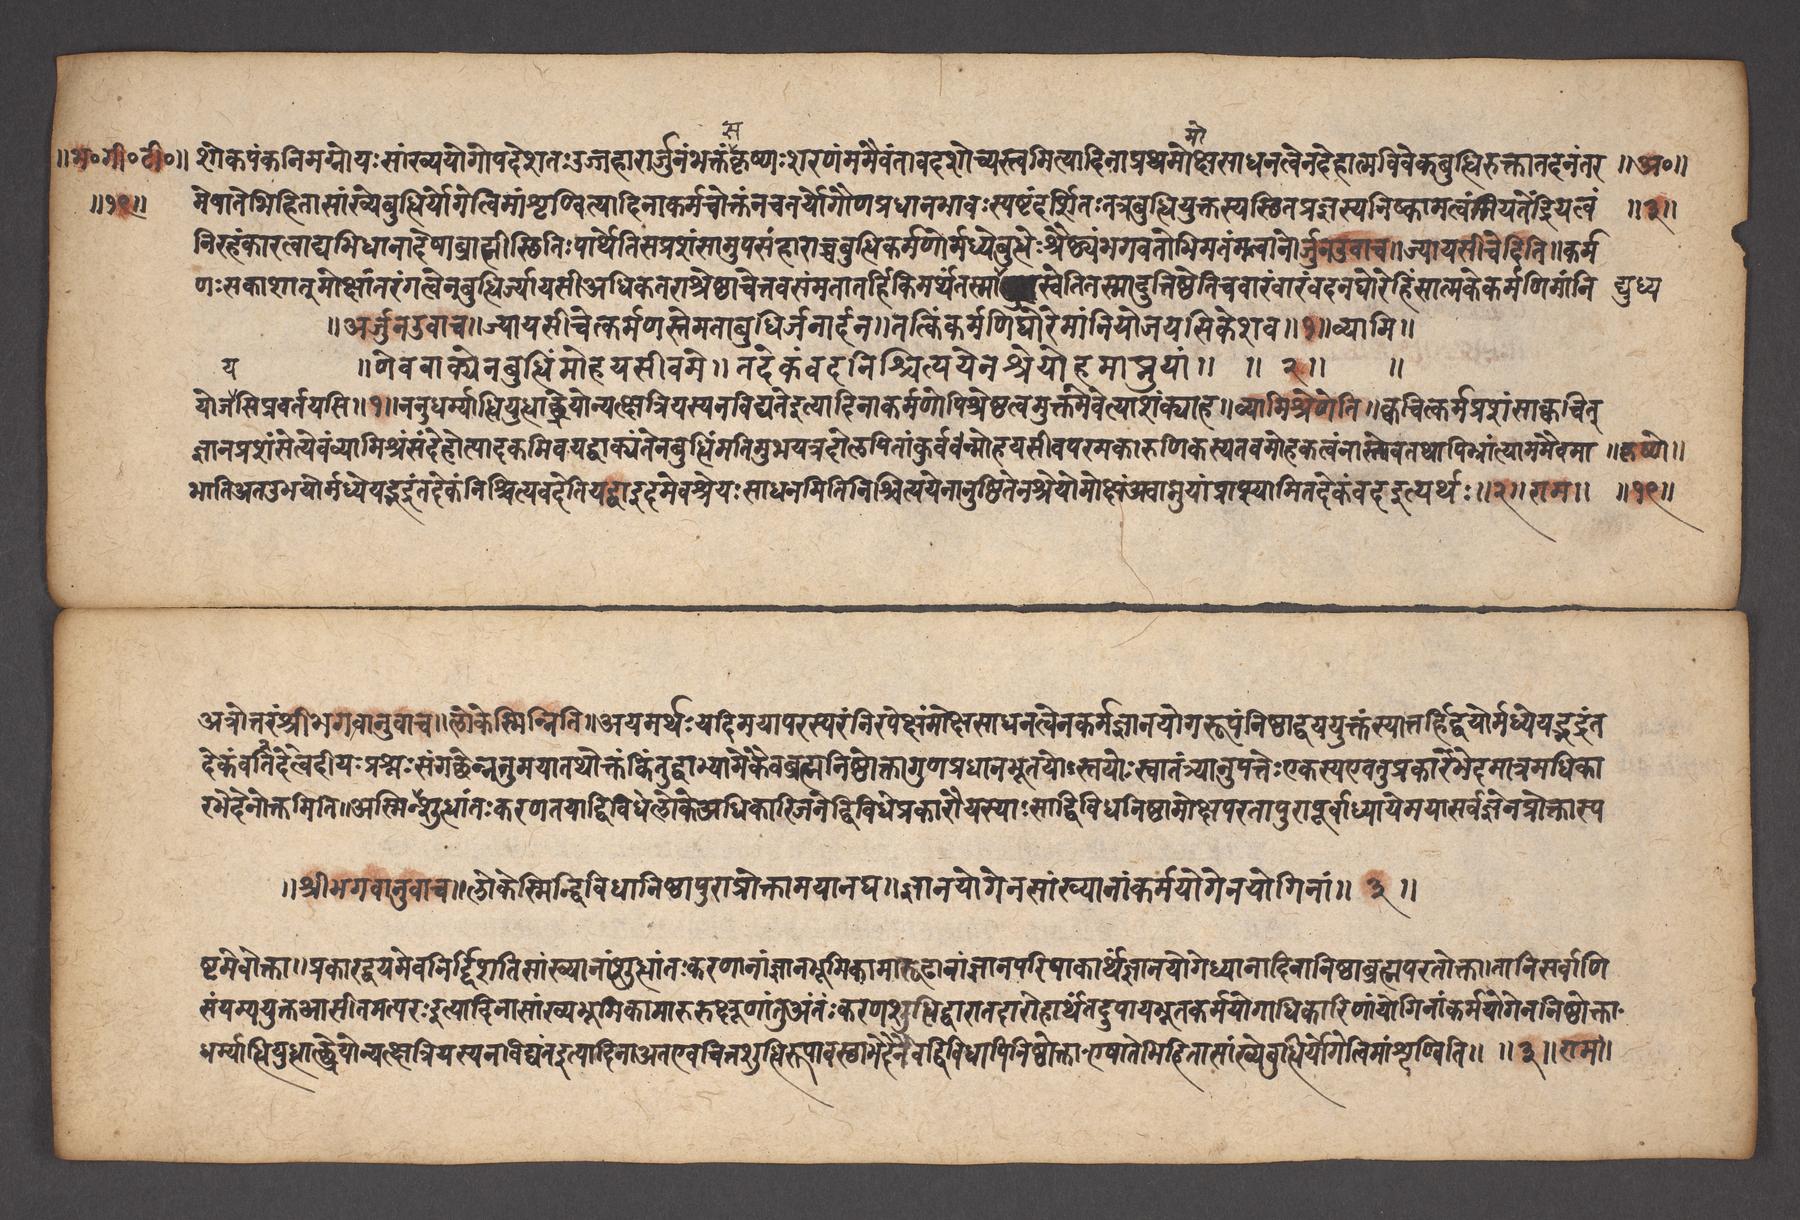 स मो
॥भ॰गी॰टी॰॥ शोकपंकनिमग्नोयःसांख्ययोगोपदेशतःउज्जहारार्जुनंभक्तंकृष्णःशरणंममैवंतावदशोच्यस्त्वमित्यादिनाप्रथमोक्षसाधनत्वेनदेहात्मविवेकबुद्धिरुक्तातदनंतर ॥अ॰॥
॥१९॥ मेषातेभिहितासांख्येबुद्धिर्योगेत्विमांशृण्वित्यादिनाकर्मचोक्तंनचतयोर्गौणप्रधानभावःस्पष्टंदर्शितःतत्रबुद्धियुक्तस्यस्थितप्रज्ञस्यनिष्कामत्वंनियतेंद्रियत्वं ॥३॥
निरहंकारत्वाद्यभिधानादेषाब्राह्मीस्थितिःपार्थेतिसप्रशंसामुपसंहाराच्चबुद्धिकर्मणोर्मध्येबुद्धेःश्रैष्ठ्यंभगवतोभिमतंमत्वानोर्जुनउवाच॥ज्यायसीचेदिति॥कर्म
णःसकाशात्मोक्षांतरंगत्वेनबुद्धिर्ज्यायसीअधिकतराश्रेष्ठाचेत्तवसंमतातर्हिकिमर्थंतस्मा स्वेतितस्मादुत्तिष्ठेतिचवारंवारंवदनघोरेहिंसात्मकेकर्मणिमांनि द्युध्य
॥अर्जुनउवाच॥ज्यायसीचेत्कर्मणस्तेमताबुधिर्जनार्दन॥तत्किंकर्मणिघोरेमांनियोजयसिकेशव॥१॥व्यामि॥
य ॥णेववाक्येनबुधिंमोहयसीवमे॥तदेकंवदनिश्चित्ययेनश्रेयोहमाप्नुयां॥ ॥२॥ ॥
योजसिप्रवर्तयसि॥१॥ननुधर्म्याद्धियुद्धाछ्रेयोन्यत्क्षत्रियस्यनविद्यतेइत्यादिनाकर्मणोपिश्रेष्ठत्वमुक्तमेवेत्याशंक्याह॥व्यामिश्रेणेति॥क्वचित्कर्मप्रशंसाक्वचित्
ज्ञानप्रशंसेत्येवंव्यामिश्रंसंदेहोत्पादकमिवयद्वाक्यंतेनबुद्धिंमतिमुभयत्रदोलायितांकुर्वन्मोहयसीवपरमकारुणिकस्यतवमोहकत्वंनास्त्येवतथापिभ्रांत्याममैवमा ॥कृष्णे॥
भातिअतउभयोर्मध्येयद्भद्रंतदेकंनिश्चित्यवदेतियद्वाइदमेवश्रेयःसाधनमितिनिश्चित्ययेनानुष्ठितेनश्रेयोमोक्षंअवाप्नुयांप्राप्स्यामितदेकंवदइत्यर्थः॥२॥राम॥ ॥१९॥
अत्रोत्तरंश्रीभगवानुवाच॥लोकेस्मिन्निति॥अयमर्थःयदिमयापरस्परंनिरपेक्षंमोक्षसाधनत्वेनकर्मज्ञानयोगरूपंनिष्ठाद्वययुक्तंस्यात्तर्हिद्वयोर्मध्येयद्भद्रंत
देकंवदेतित्वदीयःप्रश्नःसंगछेन्नतुमयातथोक्तंकिंतुद्वाभ्यामेकैवब्रह्मनिष्ठोक्तागुणप्रधानभूतयोःस्तयोःस्वातंत्र्यानुपत्तेःएकस्यएवतुप्रकारभेदमात्रमधिका
रभेदेनोक्तमिति॥अस्मिन्शुद्धांतःकरणतयाद्विविधेलोकेअधिकारिजनेद्विविधेप्रकारौयस्याःसाद्विविधनिष्ठामोक्षपरतापुरापूर्वाध्यायेमयासर्वज्ञेनप्रोक्तास्प
॥श्रीभगवानुवाच॥लोकेस्मिन्द्विविधानिष्ठापुराप्रोक्तामयानघ॥ज्ञानयोगेनसांख्यानांकर्मयोगेनयोगिनां॥३॥
ष्टमेवोक्ता॥प्रकारद्वयमेवनिर्द्दिशतिसांख्यानांशुद्धांतःकरणानांज्ञानभूमिकामारूढानांज्ञानपरिपाकार्थंज्ञानयोगेध्यानादिनानिष्ठाब्रह्मपरतोक्ता।तानिसर्वाणि
संयम्ययुक्तआसीतमत्परःइत्यादिनासांख्यभूमिकामारुरुक्षूणांतुअंतःकरणशुद्धिद्वारातदारोहार्थंतदुपायभूतकर्मयोगाधिकारिणांयोगिनांकर्मयोगेननिष्ठोक्ता
धर्म्याद्धियुद्धाछ्रेयोन्यत्क्षत्रियस्यनविद्यतइत्यादिनाअतएवचित्तशुद्धिरूपावस्थाभेदेनैवद्विविधापिनिष्ठोक्ताएषातेभिहितासांख्येबुद्धिर्योगेत्विमांशृण्विति॥ ॥३॥राम॥